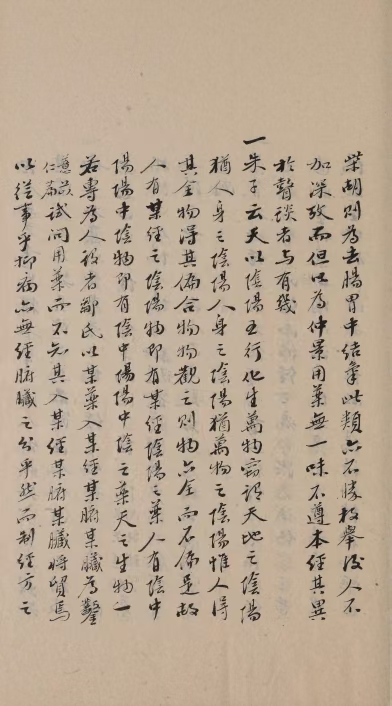 柴胡則為去腸胃中結氣此類亦不勝枚舉後人不
加深攷而但以為仲景用藥無一味不遵本經其異
於瞽談者与有幾
一朱子云天以陰陽五行化生萬物竊謂天地之陰陽
猶人身之陰陽人身之陰陽猶萬物之陰陽惟人得
其全物得其偏合物物觀之則物亦全而不偏是故
人有某經之陰陽物即有某經陰陽之藥人有陰中
陽陽中陰物即有陰中陽陽中陰之藥天之生物一
若專為人設者鄒氏以某藥入某經某腑某臟為鑿
試問用藥而不先其入某經某腑某臟將貿焉
以從事乎抑病亦無經腑臟之分乎然而制經方之